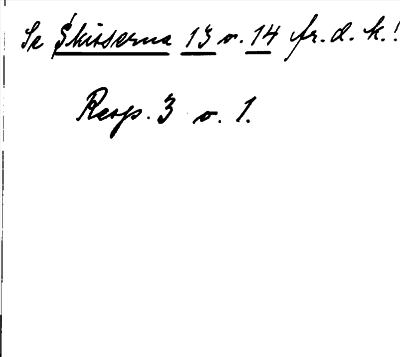 Se Skisserna 13 o. 14 fr. d. k.!
Resp. 3 o. 1.